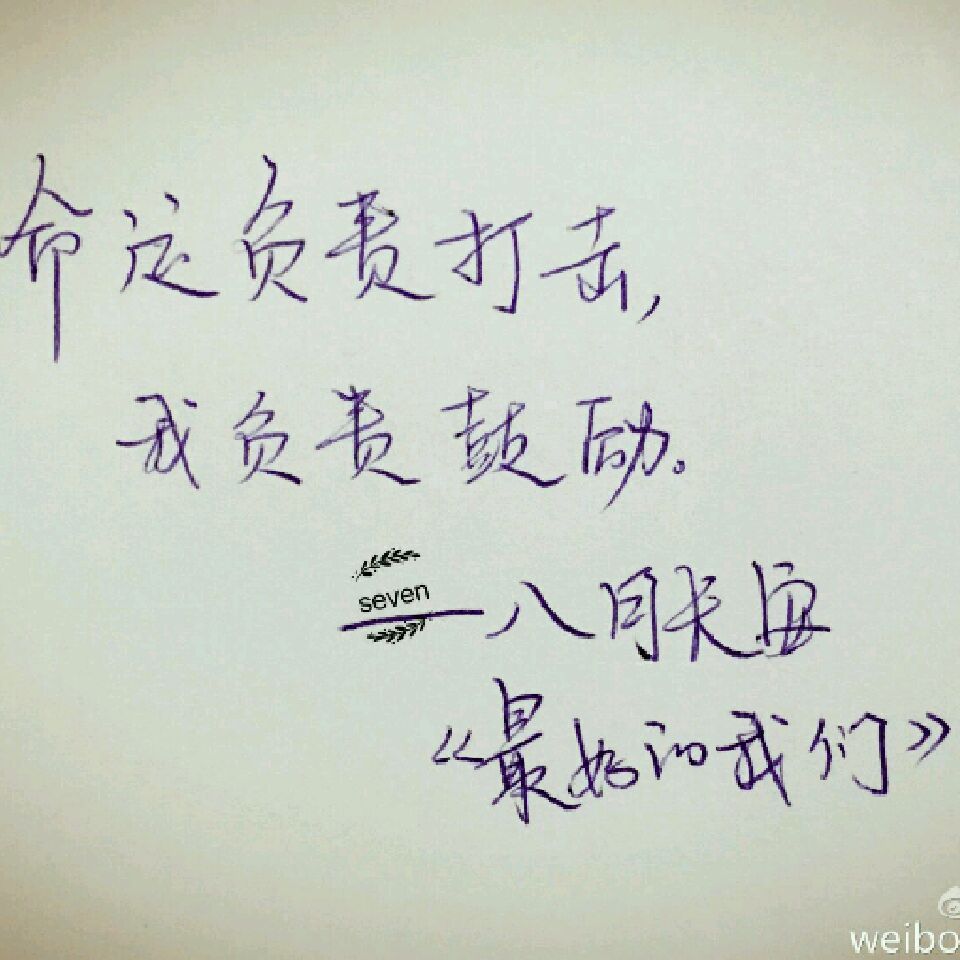 命运负责打击，
我负责鼓励。
seven
——八月长安
《最好的我们》
weibo